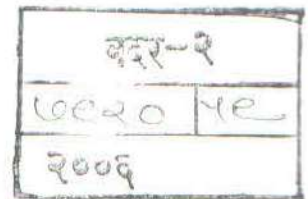 बदर-२
७९२० | ५९
२००६